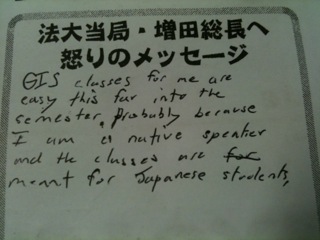 法大当局・増田総長へ
怒りのメッセージ
GIS classes for me are
easy this far into the
semester, probably because
I am a native speaker
and the classes are for
meant for Japanese students,